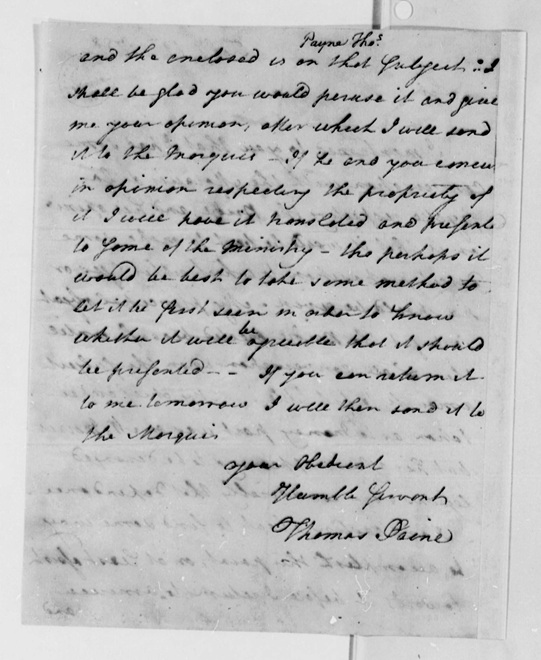 Payne Thoˢ
and the enclosed is on that Subject : I
shall be glad you would peruse it and give
me your opinion, after which I will send
it to the Marquis - If he and you concur
in opinion respecting the propriety of
it I will have it translated and presente
to some of the Ministry - tho perhaps it
would be best to take some method to
let it be first seen in order to know
whether it will be agreeable that it should
be presented - - If you can return it
to me tomorrow I will then send it to
the Marquis
your Obedient
Humble Servant
Thomas Paine